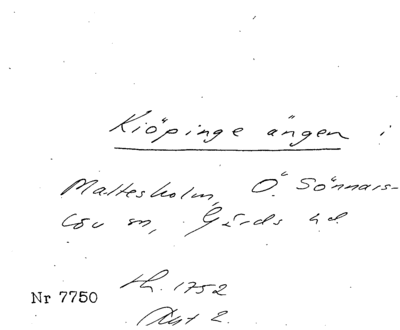 Kiöpinge ängen i
Maltesholm, Ö. Sönnars-
löv sn, Gärds hd
Nr 7750
th. 1752
Akt 2.